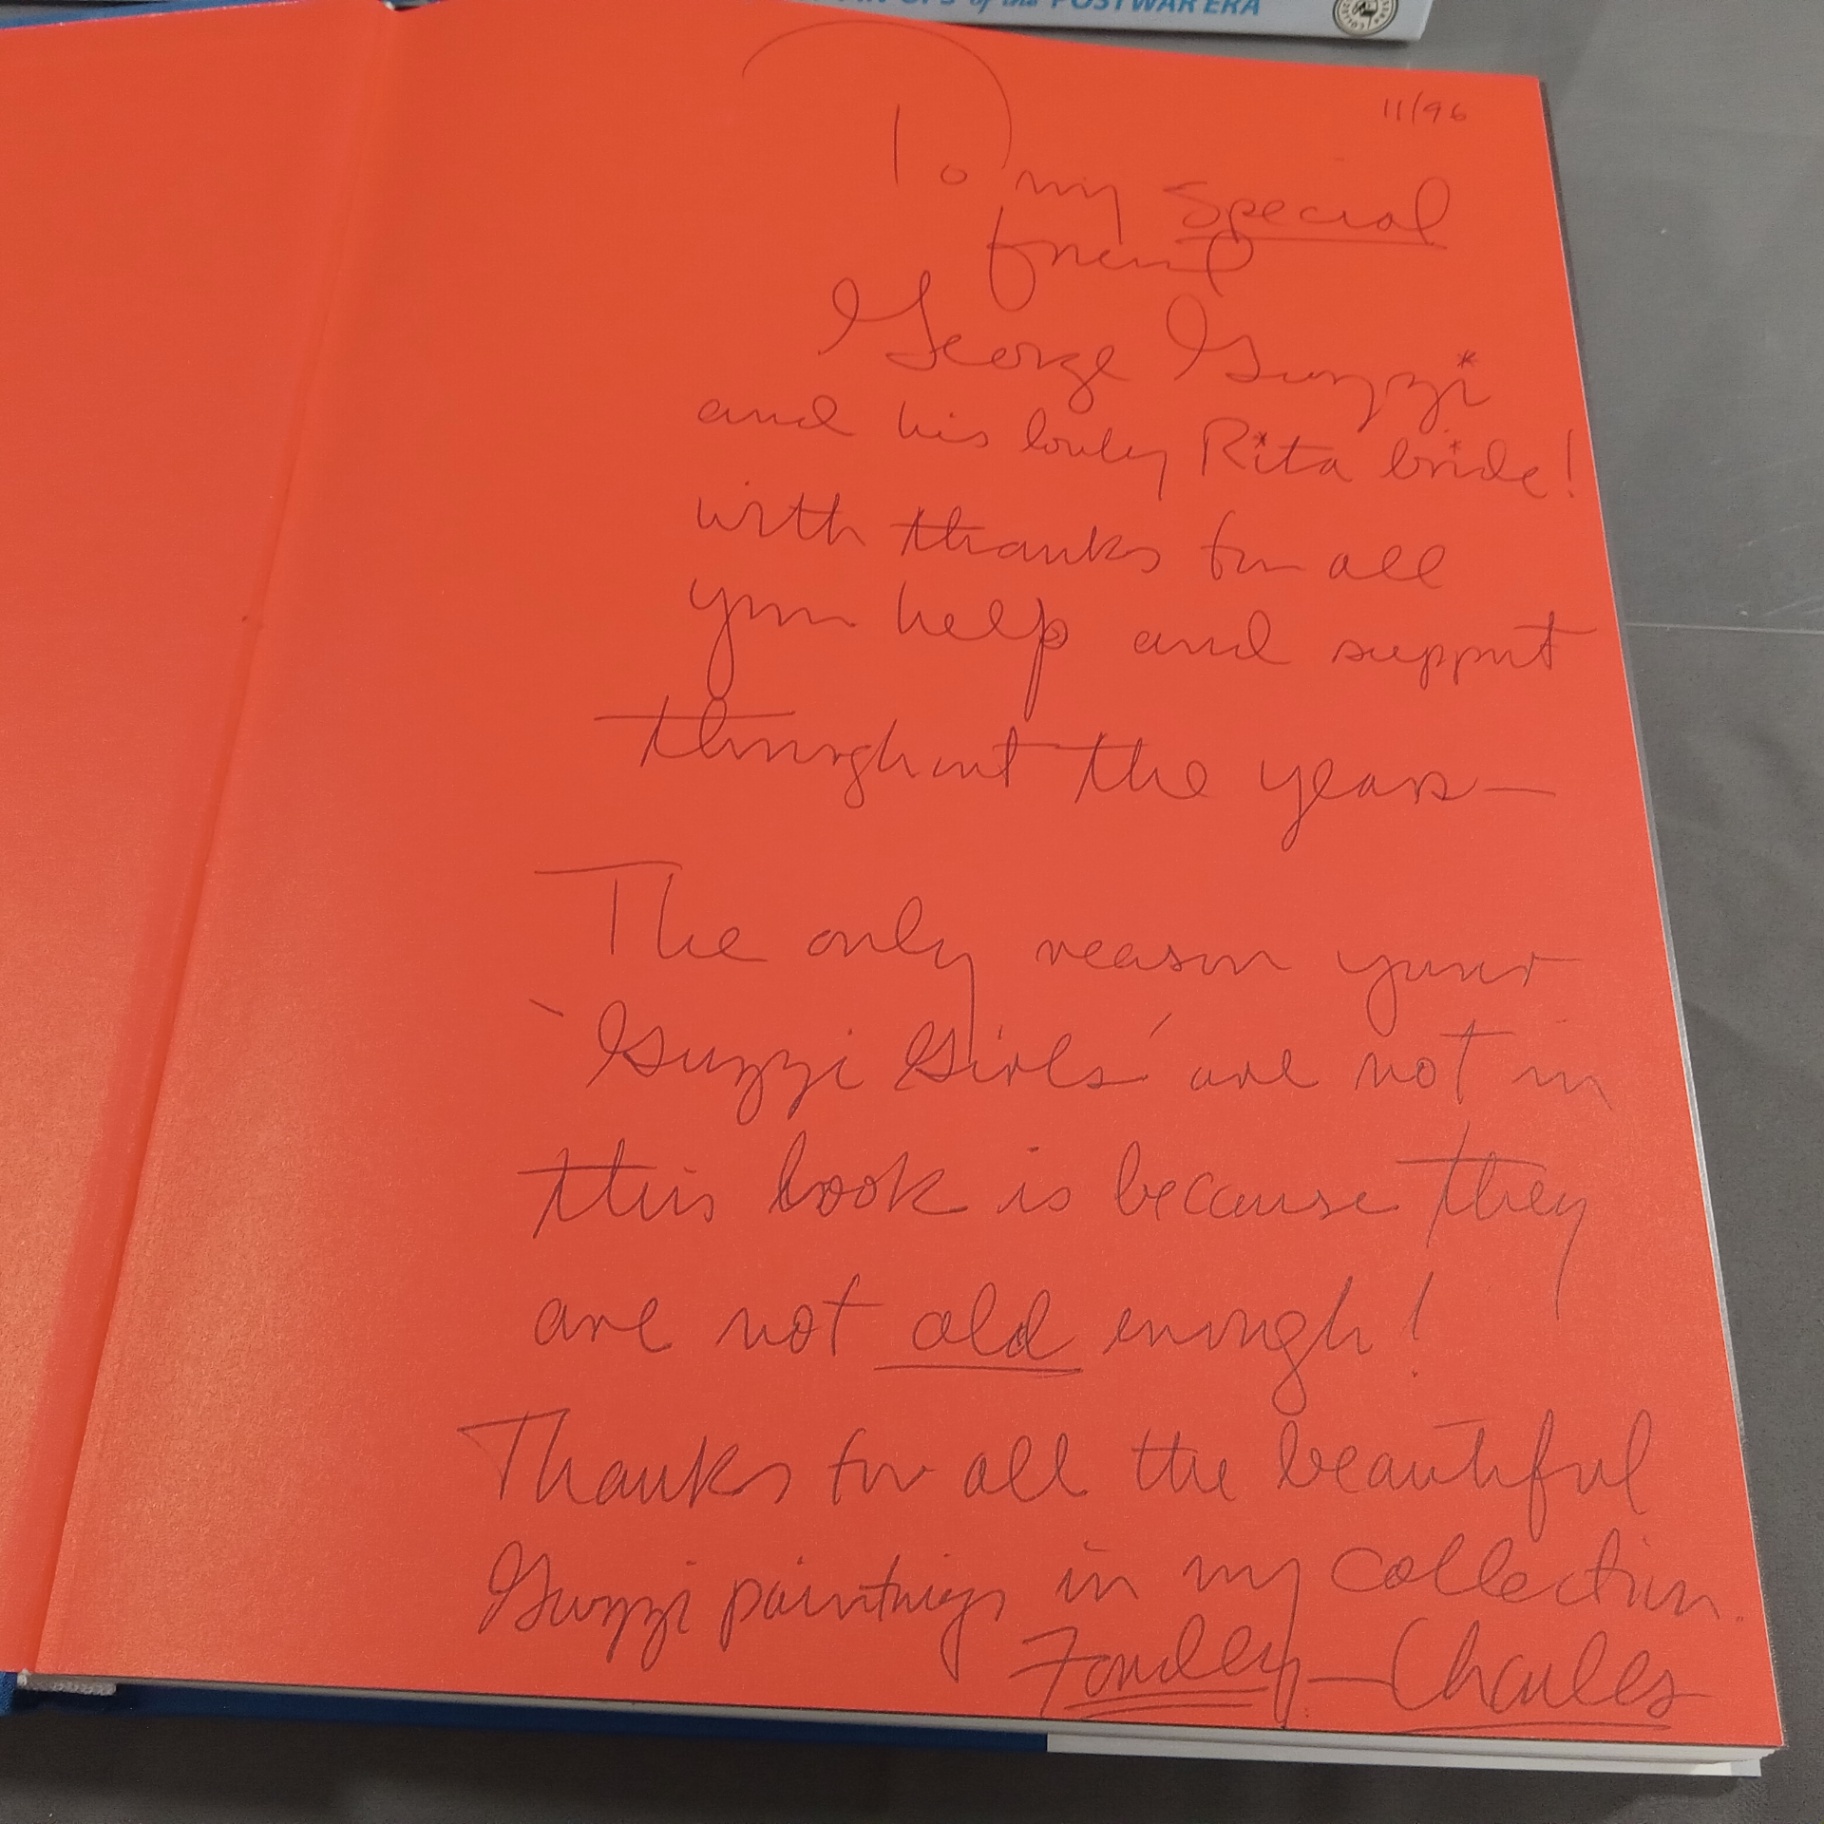 of the POSTWAR ERA
11/96
To my special
friend
George Guzzi
and his lovely Rita bride!
with thanks for all
your help and support
throughout the years—
The only reason your
'Guzzi Girls' are not in
this book is because they
are not old enough!
Thanks for all the beautiful
Guzzi paintings in my collection.
Fondly—Charles